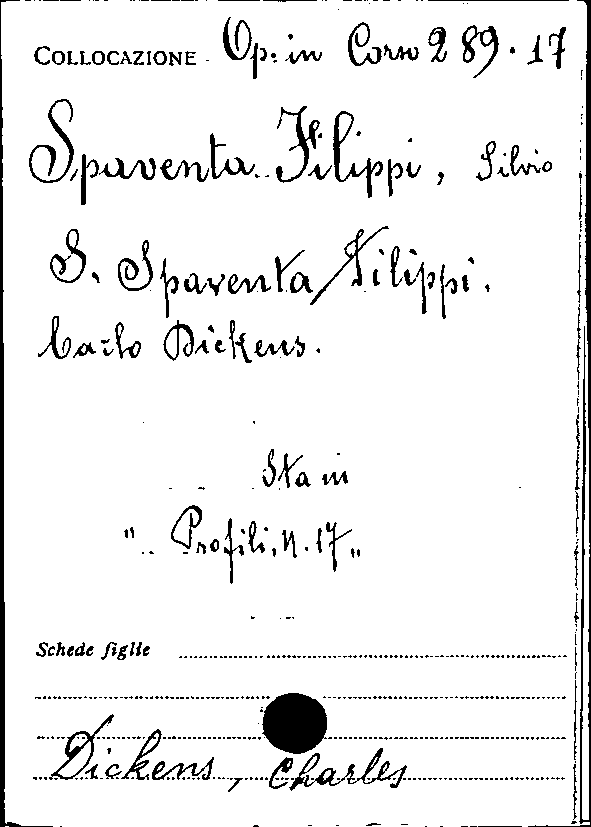 COLLOCAZIONE Op. in Corso 289.17
Spaventa Filippi, Silvio
S. Spaventa Filippi.
Carlo Dickens.
Sta in
"Profili, N. 17"
Schede figlie
Dickens, Charles